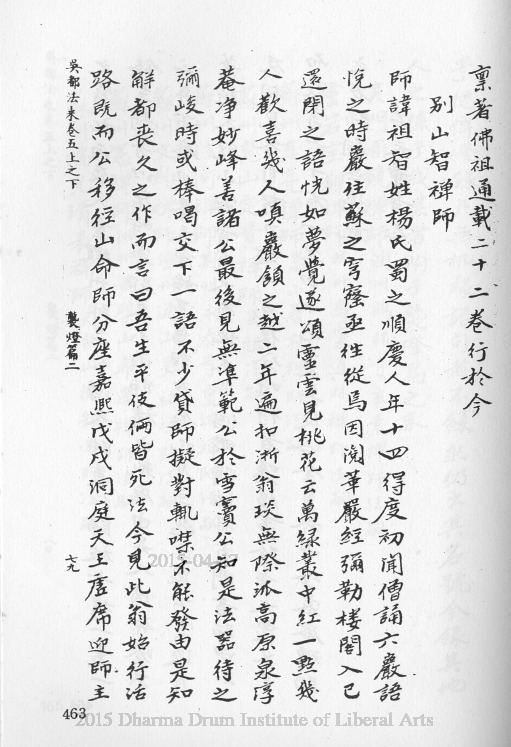 稟著佛祖通載二十二卷行於今
別山智禪師
師諱祖智姓楊氏蜀之順慶人年十四得度初聞僧誦六巖語
悅之時巖住蘇之穹窿亟徃從焉因閱華嚴經彌勒樓閣入已
還閉之語恍如夢覺遂頌靈雲見桃花云萬綠叢中紅一點幾
人歡喜幾人嗔巖頷之越二年遍扣浙翁琰無際派高原泉淳
菴净妙峰善諸公最後見無準範公於雪竇公知是法器待之
彌峻時或棒喝交下一語不少貸師擬對輒噤不能發由是知
解都喪久之作而言曰吾生平伎倆皆死法今見此翁始行活
路既而公移徑山命師分座嘉熙戊戌洞庭天王虛席迎師主
吳都法乘卷五上之下
襲燈篇二
七九
463
2015-04-27
2015 Dharma Drum Institute of Liberal Arts